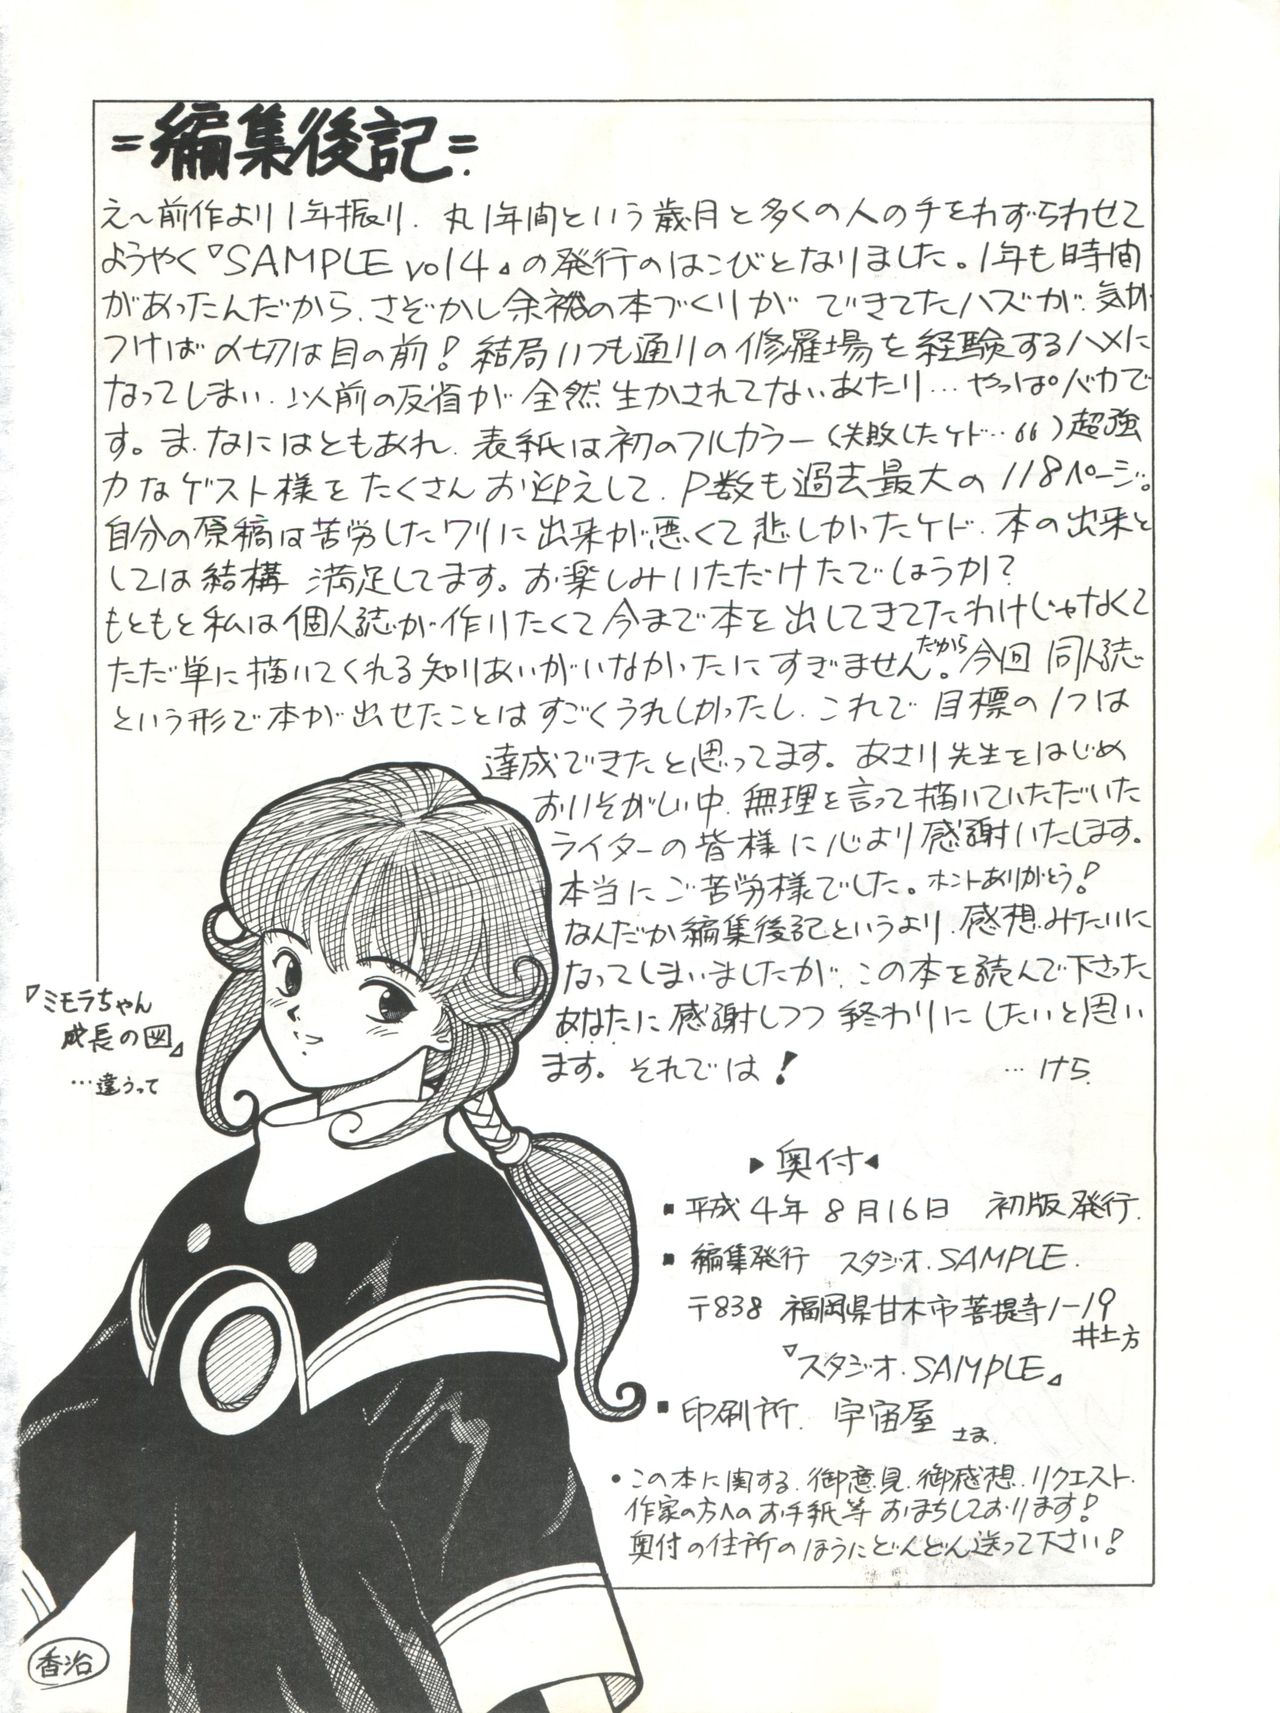 =編集後記=
え〜前作より1年振り、丸1年間という歳月と多くの人の手をわずらわせて
ようやく『SAMPLE vol4』の発行のはこびとなりました。1年も時間
があったんだから、さぞかし余裕の本づくりが できてたハズが、気が
つけば〆切は目の前!結局いつも通りの修羅場を経験するハメに
なってしまい、以前の反省が全然生かされてないあたり…やっぱバカで
す。ま、なにはともあれ、表紙は初のフルカラー(失敗したケド…66)超強
力なゲスト様をたくさんお迎えして、P数も過去最大の118ページ。
自分の原稿は苦労したワリに出来が悪くて悲しかったケド、本の出来と
しては結構 満足してます。お楽しみいただけたでしょうか?
もともと私は個人誌が作りたくて今まで本を出してきてたわけじゃなくて
ただ単に描いてくれる知りあいがいなかったにすぎません。だから今回 同人誌
という形で本が出せたことはすごくうれしかったし、これで目標の1つは
達成できたと思ってます。あさり先生をはじめ
おいそがしい中、無理を言って描いていただいた
ライターの皆様に心より感謝いたします。
本当にご苦労様でした。ホントありがとう!
なんだか編集後記というより、感想みたいに
なってしまいましたが、この本を読んで下さった
あなたに感謝しつつ終わりにしたいと思い
ます。それでは!
…けら
『ミモラちゃん
成長の図』
…違うって
▶奥付◀
■平成4年8月16日 初版発行
■編集発行 スタジオ.SAMPLE.
〒838 福岡県甘木市菩提寺1-19
井上方
『スタジオ.SAMPLE』
■印刷所. 宇宙屋さま.
•この本に関する、御意見、御感想、リクエスト、
作家の方へのお手紙等おまちしております!
奥付の住所のほうにどんどん送って下さい!
香治